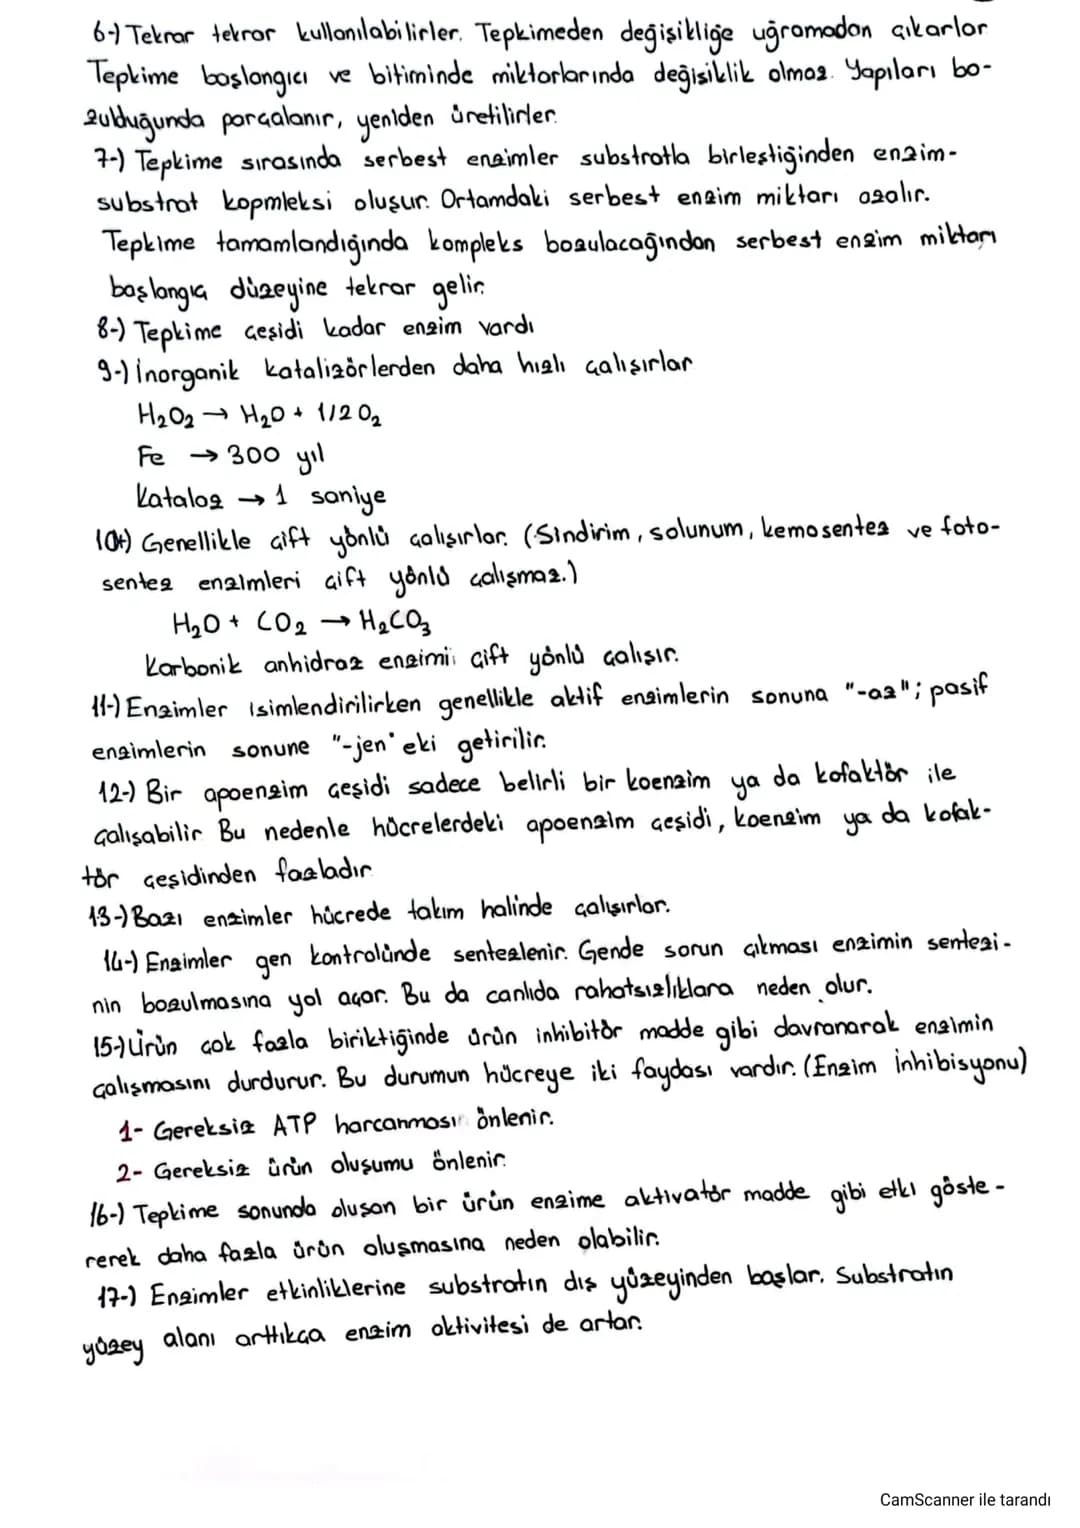 6-) Tekrar tekrar kullanılabilirler. Tepkimeden değişikliğe uğramadan çıkarlar
Tepkime başlangıcı ve bitiminde miktarlarında değişiklik olmaz. Yapıları bo-
zulduğunda parçalanır, yeniden üretilirler.
7-) Tepkime sırasında serbest enzimler substratla birleştiğinden enzim-
substrat kopmleksi oluşur. Ortamdaki serbest enzim miktarı azalır.
Tepkime tamamlandığında kompleks bozulacağından serbest enzim miktarı
başlangıç düzeyine tekrar gelir.
8-) Tepkime çeşidi kadar enzim vardı
9-) İnorganik katalizörlerden daha hızlı çalışırlar
H₂O₂ → H₂O + 1/2 O₂
Fe → 300 yıl
Katalaz → 1 saniye
10-) Genellikle çift yönlü çalışırlar. (Sindirim, solunum, kemosentez ve foto-
sentez enzimleri çift yönlü çalışmaz.)
H₂O + CO₂ → H₂CO₃
Karbonik anhidraz enzimi çift yönlü çalışır.
11-) Enzimler isimlendirilirken genellikle aktif enzimlerin sonuna "-az"; pasif
enzimlerin sonune "-jen" eki getirilir.
12-) Bir apoenzim çeşidi sadece belirli bir koenzim ya da kofaktör ile
çalışabilir. Bu nedenle hücrelerdeki apoenzim çeşidi, koenzim ya da kofak-
tör çeşidinden fazladır
13-) Bazı enzimler hücrede takım halinde çalışırlar.
14-) Enzimler gen kontrolünde sentezlenir. Gende sorun çıkması enzimin sentezi-
nin bozulmasına yol açar. Bu da canlıda rahatsızlıklara neden olur.
15-) Ürün çok fazla biriktiğinde ürün inhibitör madde gibi davranarak enzimin
çalışmasını durdurur. Bu durumun hücreye iki faydası vardır. (Enzim İnhibisyonu)
1- Gereksiz ATP harcanması önlenir.
2- Gereksiz ürün oluşumu önlenir.
16-) Tepkime sonunda oluşan bir ürün enzime aktivatör madde gibi etki göste-
rerek daha fazla ürün oluşmasına neden olabilir.
17-) Enzimler etkinliklerine substratın dış yüzeyinden başlar. Substratın
yüzey alanı arttıkça enzim aktivitesi de artar.
CamScanner ile tarandı